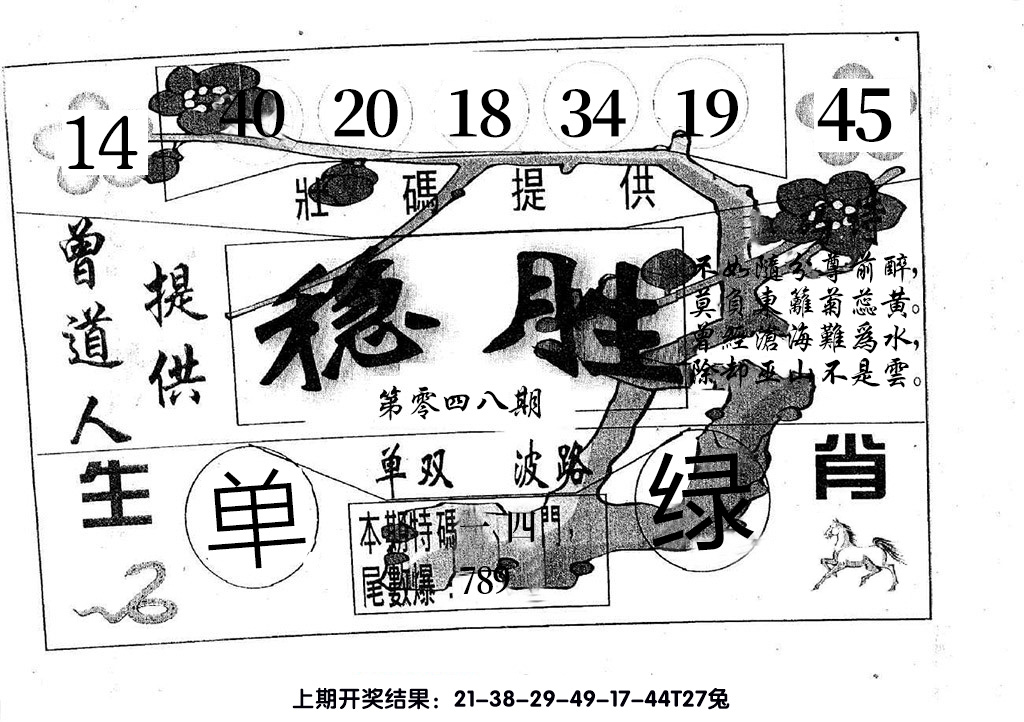 14 40 20 18 34 19 45
壯碼提供
曾道人
提供
稳胜
第零四八期
特
不如隨分尊前醉，
莫負東籬菊蕊黃。
曾經滄海難爲水，
除却巫山不是雲。
单双 波路
生肖
单
绿
本期特碼一、四門，
尾數爆：789
上期开奖结果：21-38-29-49-17-44T27兔